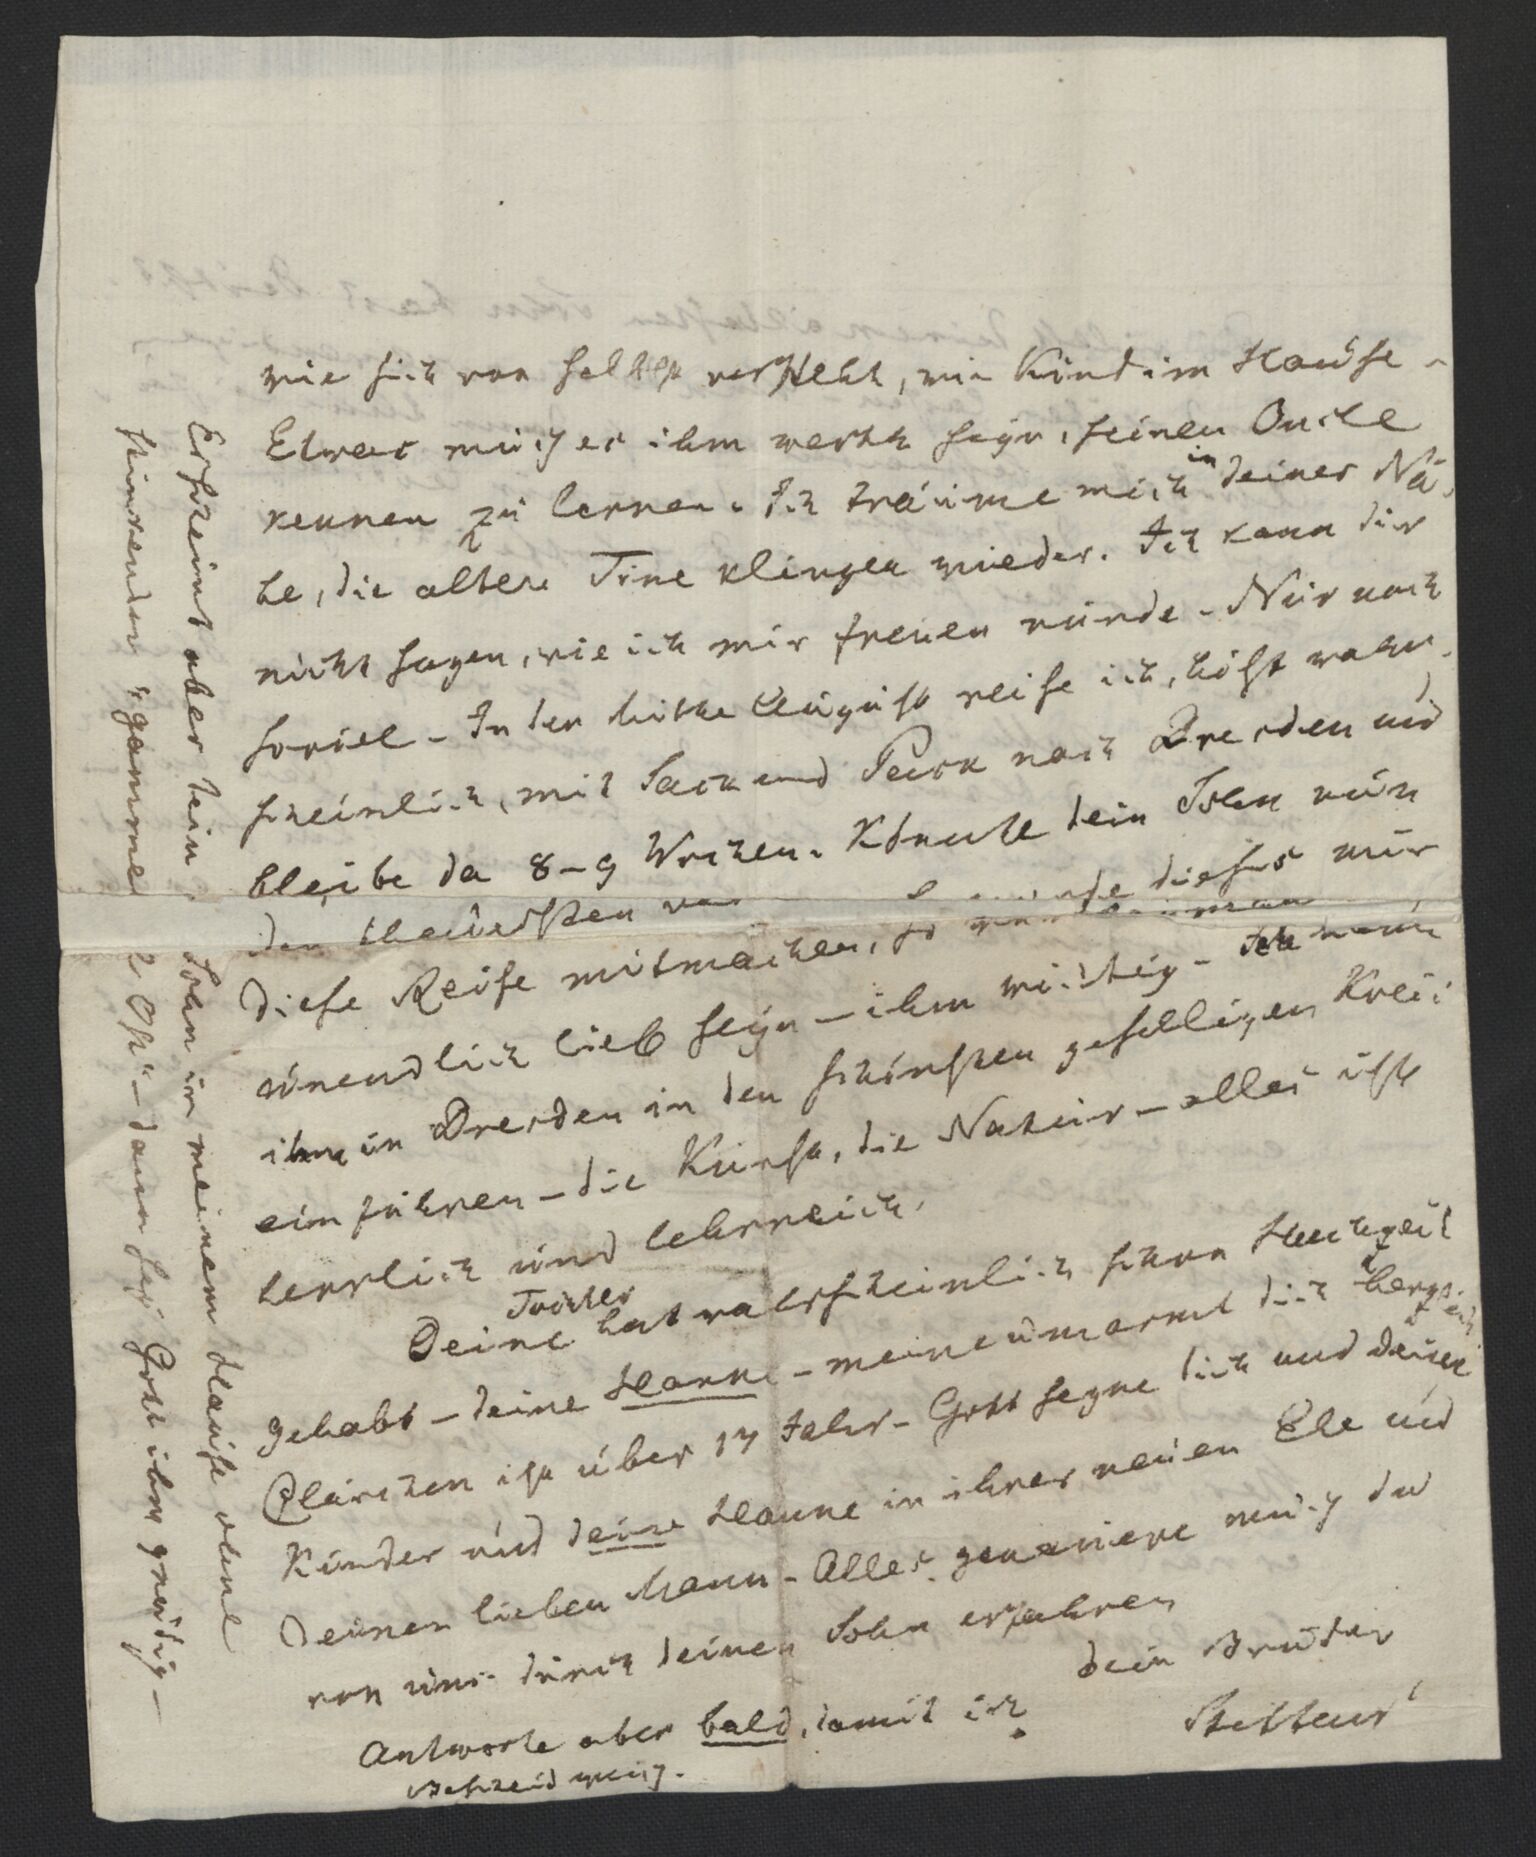 wie sich von selbst versteht, wie Kind im Hause -
Etwas muß es ihm werth seyn, seinen Onkle
kennen zu lernen. Ich träume mich in deiner Nä-
he, die alten Töne klingen wieder. Ich kann dir
nicht sagen, wie ich mir freuen würde - Nur noch
soviel - In der Mitte August reise ich, höchst wahr-
scheinlich, mit Sack und Pack nach Dresden und
bleibe da 8-9 Wochen. Könnte dein Sohn nun
diese Reise mitmachen, so würde dieses mir
unendlich lieb seyn - ihm wichtig - Ich kann
ihn in Dresden in den schönsten geselligen Kreis
einführen - die Kunst, die Natur - alles ist
herrlich und lehrreich.
Deine Tochter hat wahrscheinlich schon Hochzeit
gehabt - deine Hanne - meine umarmt dich herzlich
Clärchen ist über 17 Jahr - Gott segne dich und deine
Kinder und deine Hanne in ihrer neuen Ehe und
Deinen lieben Mann - Alles genauere mußt du
von uns durch deinen Sohn erfahren
dein Bruder
Steffens
Antworte aber bald, damit ich
Bescheid weiß.
Erscheint aber dein Sohn in meinem Hause ohne
- dann sey Gott ihm gnädig -